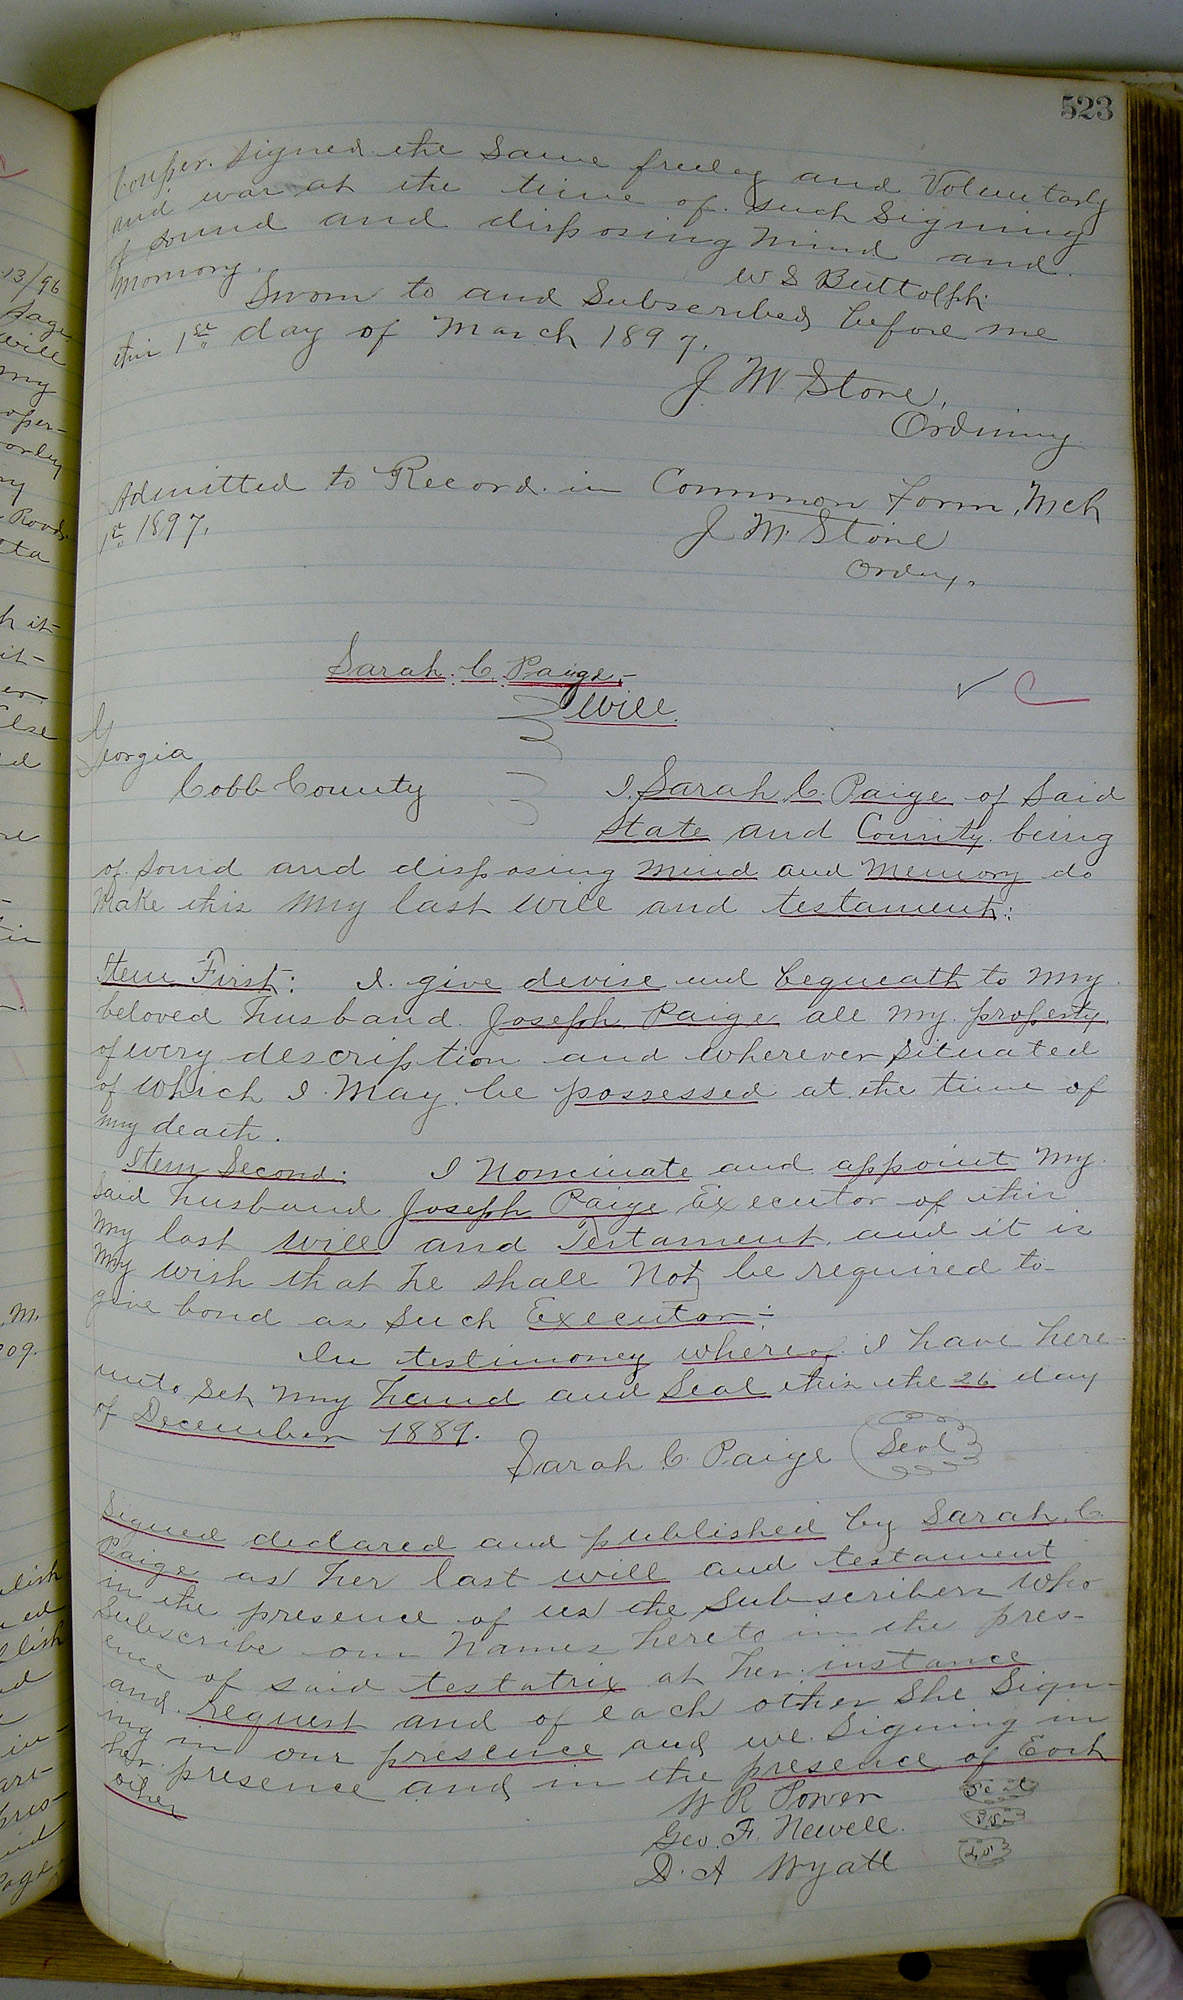 523
Couper. Signed the Same freely and Voluntarly
and was at the time of such Signing
of sound and disposing mind and
Momory.
W S Buttolph
Sworn to and Subscribed before me
this 1st day of March 1897.
J. M Stone,
Ordinary
Admitted to Record in Common Form, Mch
1st 1897.
J M. Stone
Ordny.
Sarah. C. Paige.
Will.
Georgia
Cobb County
I. Sarah C. Paige of Said
State and County being
of sound and disposing mind and Memory do
Make this My last will and testament:
Item First: I. give devise and bequeath to My
beloved husband Joseph Paige all My property
of every description and wherever situated
of which I May be possessed at the time of
My death.
Item Second: I Nominate and appoint My
said husband Joseph Paige Executor of this
My last will and Testament, and it is
My wish that he shall Not be required to
give bond as such Executor:
In testimoney whereof I have here
unto Set My hand and Seal this the 26 day
of December 1889.
Sarah C. Paige Seal
Signed declared and published by Sarah. C.
Paige as her last will and testament
in the presence of us the Subscribers who
Subscribe our Names hereto in the pres-
ence of said testatrix at her instance
and request and of each other She Sign-
ing in our presence and we Signing in
her presence and in the presence of Each
other
W R Power Seal
Geo. F. Newell.
D. A Wyatt L.S.
13/96
Page
will
my
Roads
h it
it-
er
Else
ed
M.
09.
lish
ed
lish
in
pres-
Page